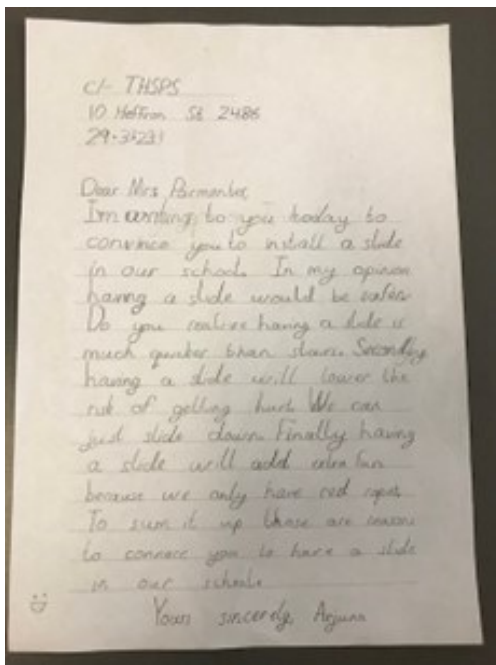 c/- THSPS
10 Heffron St 2486
Dear Mrs Parmenter,
I'm writing to you today to
convince you to install a slide
in our school. In my opinion
having a slide would be safer.
Do you realise having a slide is
much quicker than stairs. Secondly
having a slide will lower the
risk of getting hurt. We can
just slide down. Finally having
a slide will add extra fun
because we only have red
To sum it up those are reasons
to convince you to have a slide
in our school.
Yours sincerely, Arjuna